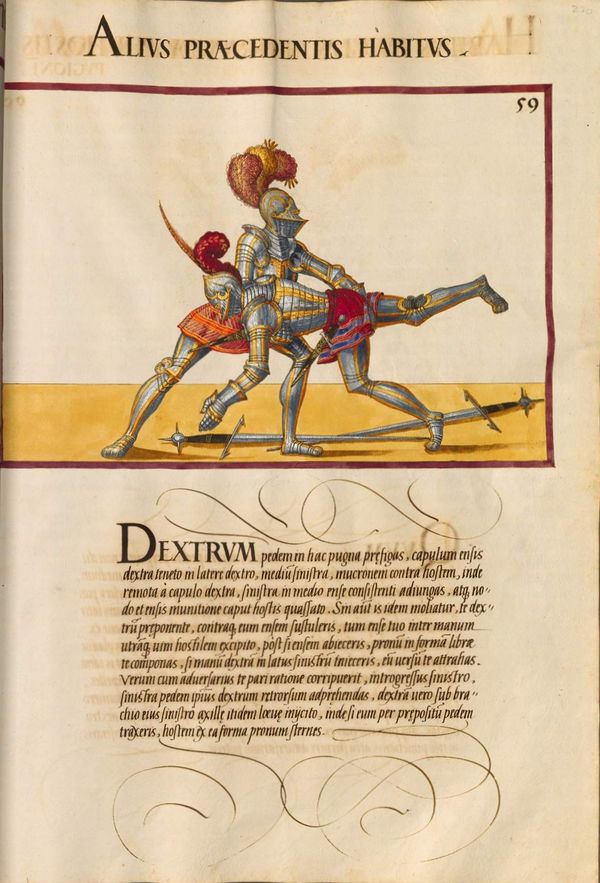 ALIVS PRÆCEDENTIS HABITVS.
59
DEXTRVM pedem in hac pugna pręfigas, capulum ensis
dextra teneto in latere dextro, mediũ sinistra, mucronem contra hostem, inde
remota à capulo dextra, sinistra in medio ense consistenti adiungas, atq, no-
do et ensis munitione caput hostis quassato. Sin aũt is idem moliatur, te dex-
trũ pręponente, contraq, eum ensem sustuleris, tum ense tuo inter manum
utrãq, uim hostilem excipito, post si ensem abieceris, pronũ in formã librae
te componas, si manũ dextrã in latus sinistrũ inieceris, eũ versũ te attrahas.
Verum cum adversarius te pari ratione corripuerit, introgressus sinistro,
sinistra pedem ipsius dextrum retrorsum adprehendas, dextrã vero sub bra-
chio eius sinistro axillę itidem loevę inijcito, inde si eum per prępositũ pedem
traxeris, hostem ex ea forma pronum sternes.